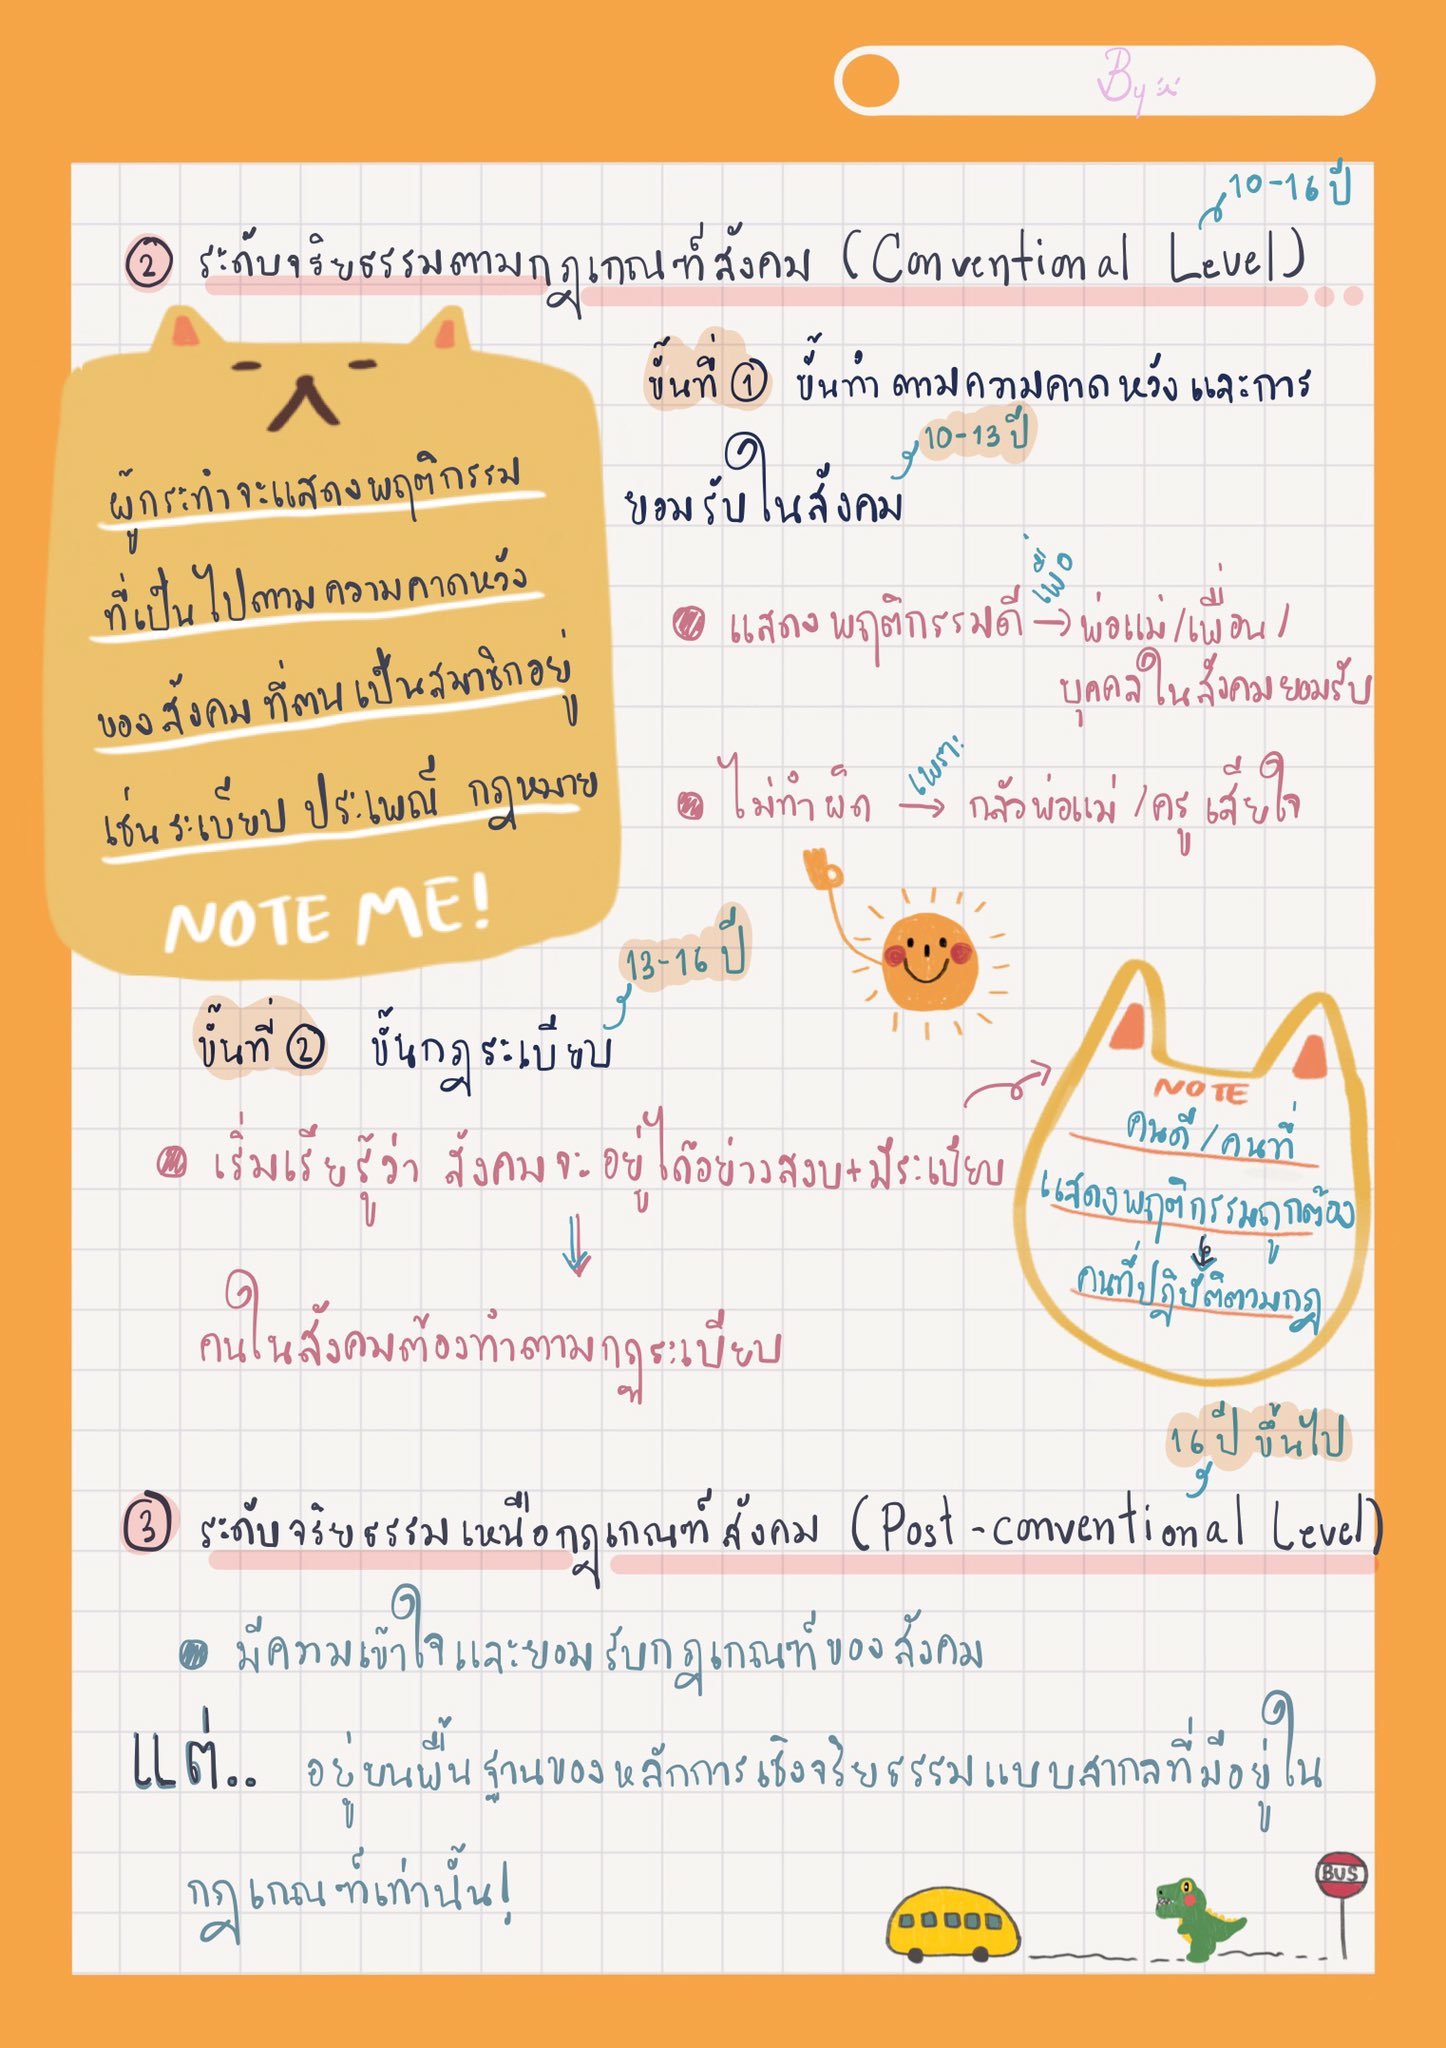 By
10-16 ปี
② ระดับจริยธรรมตามกฎเกณฑ์สังคม (Conventional Level)
ขั้นที่ ① ขั้นทำตามความคาดหวังและการ
10-13 ปี
ยอมรับในสังคม
ผู้กระทำจะแสดงพฤติกรรม
ที่เป็นไปตามความคาดหวัง
ของสังคมที่ตนเป็นสมาชิกอยู่
เช่นระเบียบ ประเพณี กฎหมาย
NOTE ME!
เพื่อ
แสดงพฤติกรรมดี → พ่อแม่/เพื่อน/
บุคคลในสังคมยอมรับ
เพราะ
ไม่ทำผิด → กลัวพ่อแม่/ครู เสียใจ
13-16 ปี
ขั้นที่ ② ขั้นกฎระเบียบ
เริ่มเรียรู้ว่า สังคมจะอยู่ได้อย่างสงบ+มีระเบียบ
คนในสังคมต้องทำตามกฎระเบียบ
NOTE
คนดี/คนที่
แสดงพฤติกรรมถูกต้อง
คนที่ปฏิบัติตามกฎ
16 ปี ขึ้นไป
③ ระดับจริยธรรมเหนือกฎเกณฑ์สังคม (Post-conventional Level)
มีความเข้าใจและยอมรับกฎเกณฑ์ของสังคม
แต่.. อยู่บนพื้นฐานของหลักการเชิงจริยธรรมแบบสากลที่มีอยู่ใน
กฎเกณฑ์เท่านั้น!
BUS